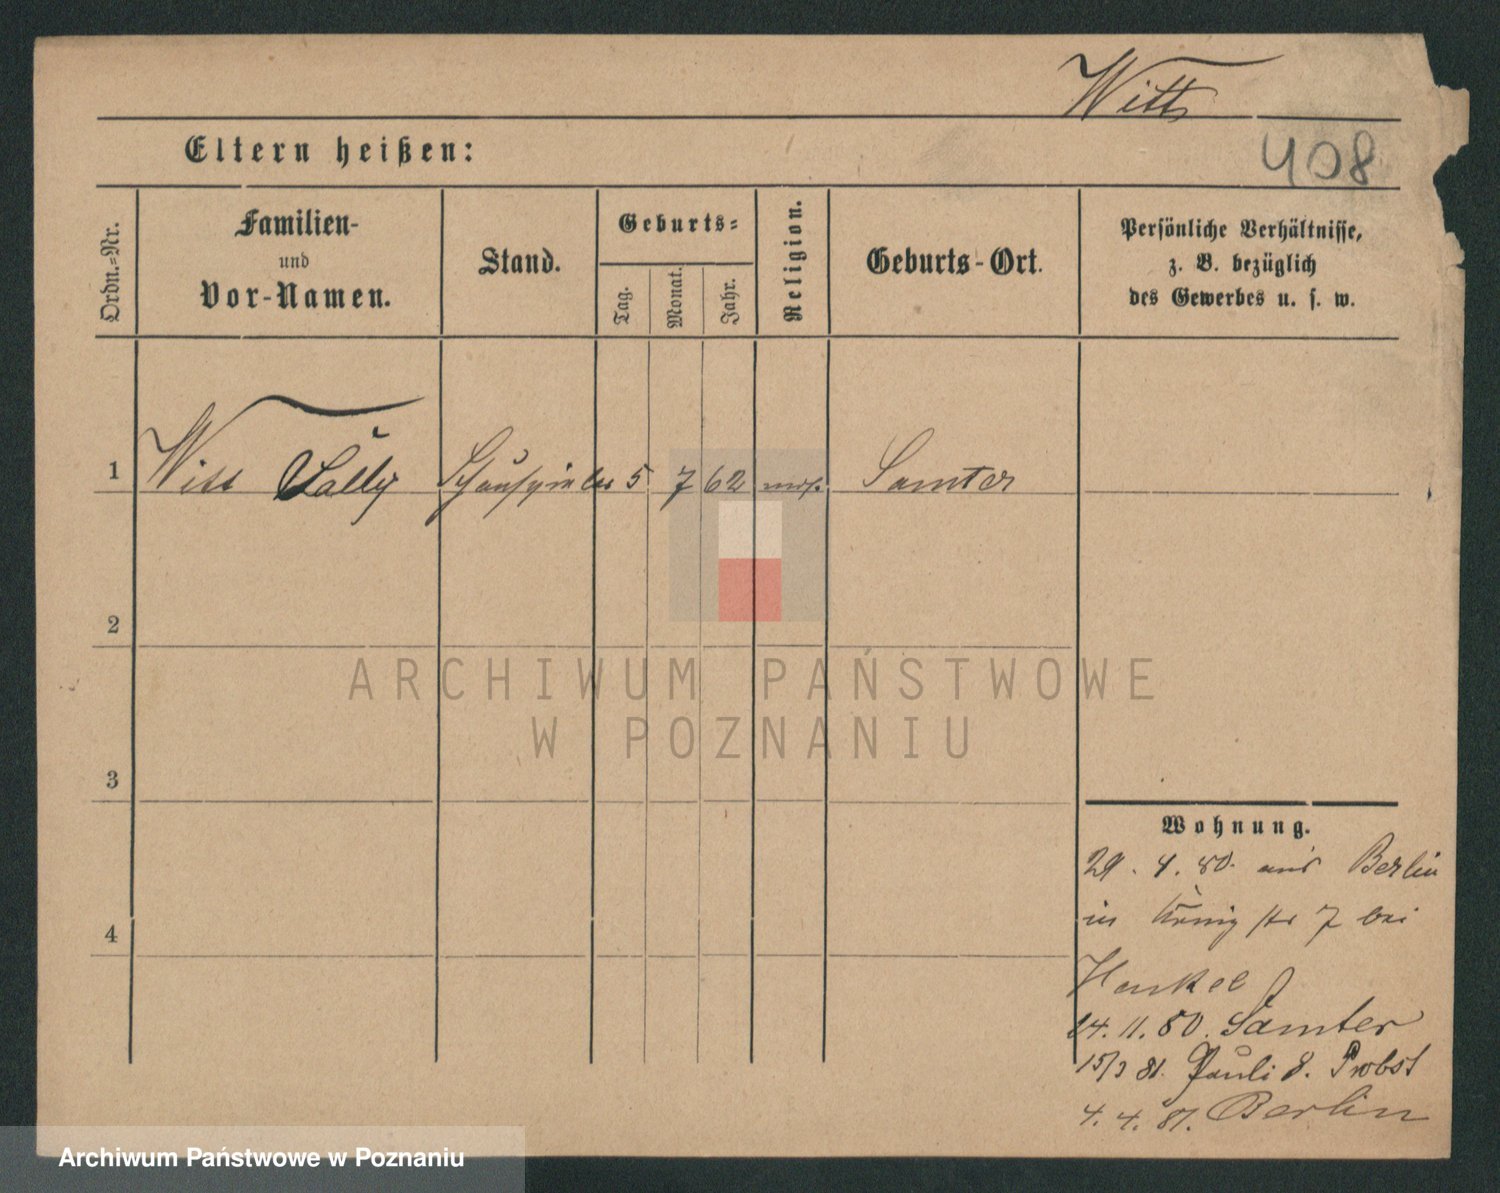 Witt
408
Eltern heißen:
Ordn.-Nr.
Familien-
und
Vor-Namen.
Stand.
Geburts-
Tag.
Monat.
Jahr.
Religion.
Geburts-Ort.
Persönliche Verhältnisse,
z. B. bezüglich
des Gewerbes u. s. w.
1 Witt Sally Schauspieler 5 7 62 mos. Samter
2
3
4
Wohnung.
29. 4. 80. aus Berlin
in König str 7 bei
Hankel
24. 11. 80. Samter
15/3 81. Pauli 8. Probst
4. 4. 81. Berlin
ARCHIWUM PAŃSTWOWE
W POZNANIU
Archiwum Państwowe w Poznaniu